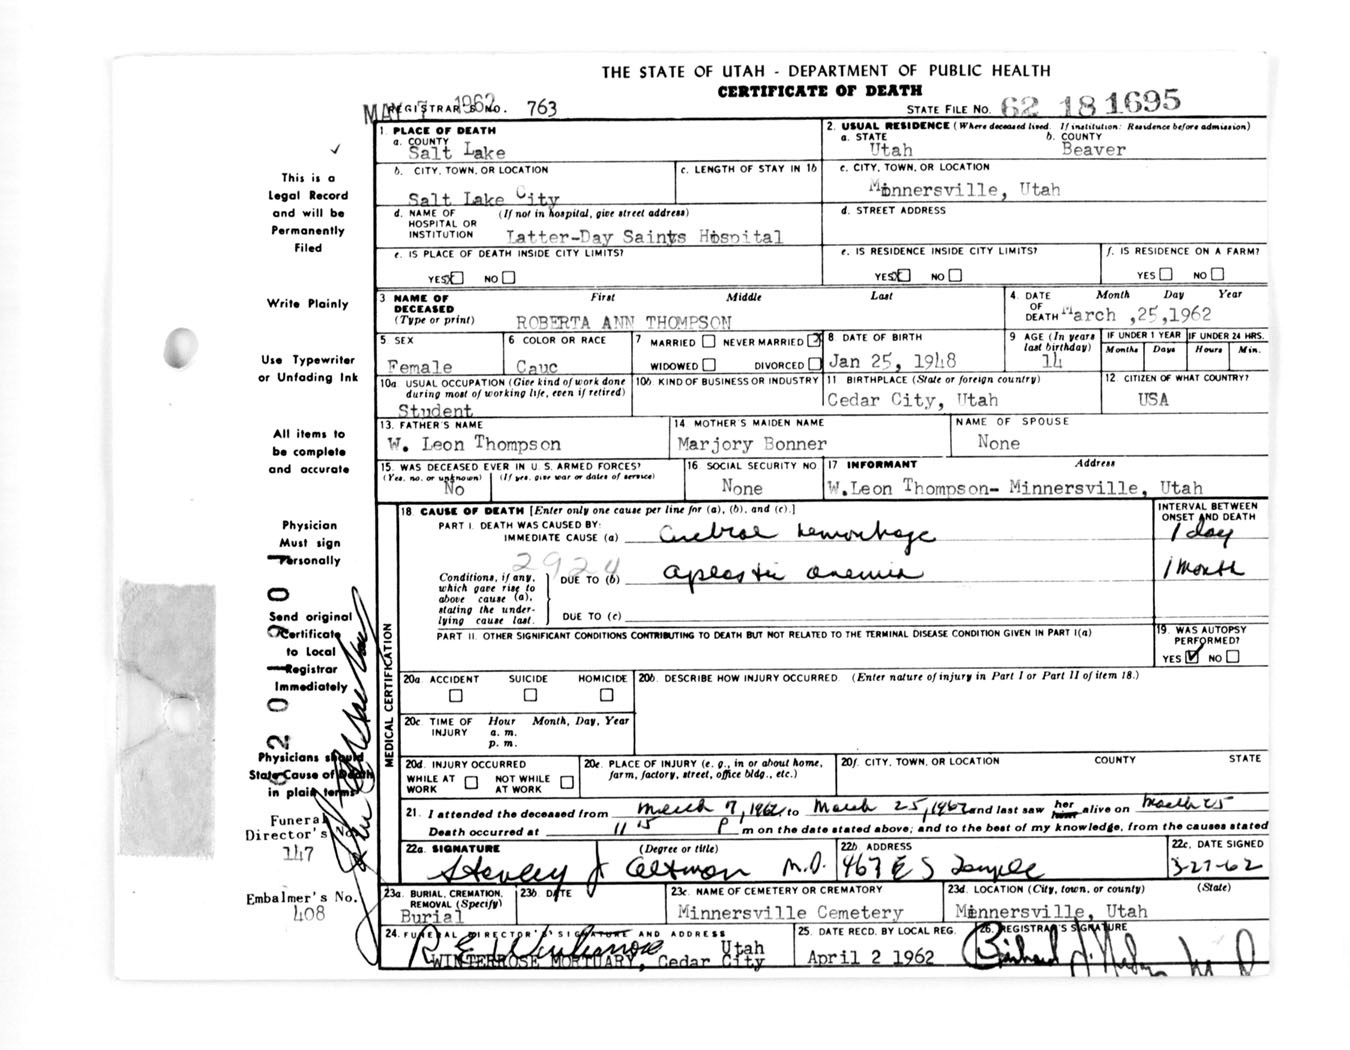 THE STATE OF UTAH - DEPARTMENT OF PUBLIC HEALTH
CERTIFICATE OF DEATH
MAY 7 1962 REGISTRAR'S NO. 763
STATE FILE NO. 62 18 1695
1. PLACE OF DEATH
a. COUNTY
Salt Lake
2. USUAL RESIDENCE (Where deceased lived. If institution: Residence before admission)
a. STATE b. COUNTY
Utah Beaver
b. CITY, TOWN, OR LOCATION
Salt Lake City
c. LENGTH OF STAY IN 1b
c. CITY, TOWN, OR LOCATION
Minnersville, Utah
d. NAME OF (If not in hospital, give street address)
HOSPITAL OR
INSTITUTION Latter-Day Saints Hospital
d. STREET ADDRESS
e. IS PLACE OF DEATH INSIDE CITY LIMITS?
YES X NO
e. IS RESIDENCE INSIDE CITY LIMITS?
YES X NO
f. IS RESIDENCE ON A FARM?
YES NO
3 NAME OF First Middle Last
DECEASED
(Type or print) ROBERTA ANN THOMPSON
4. DATE Month Day Year
OF
DEATH March ,25,1962
5 SEX
Female
6 COLOR OR RACE
Cauc
7 MARRIED NEVER MARRIED X
WIDOWED DIVORCED
8 DATE OF BIRTH
Jan 25, 1948
9 AGE (In years
last birthday)
14
IF UNDER 1 YEAR IF UNDER 24 HRS.
Months Days Hours Min.
10a. USUAL OCCUPATION (Give kind of work done
during most of working life, even if retired)
Student
10b. KIND OF BUSINESS OR INDUSTRY
11 BIRTHPLACE (State or foreign country)
Cedar City, Utah
12. CITIZEN OF WHAT COUNTRY?
USA
13. FATHER'S NAME
W. Leon Thompson
14 MOTHER'S MAIDEN NAME
Marjory Bonner
NAME OF SPOUSE
None
15. WAS DECEASED EVER IN U. S. ARMED FORCES?
(Yes, no, or unknown) (If yes, give war or dates of service)
No
16. SOCIAL SECURITY NO
None
17 INFORMANT Address
W.Leon Thompson- Minnersville, Utah
MEDICAL CERTIFICATION
18 CAUSE OF DEATH [Enter only one cause per line for (a), (b), and (c).]
INTERVAL BETWEEN
ONSET AND DEATH
PART I. DEATH WAS CAUSED BY:
IMMEDIATE CAUSE (a) Cerebral hemorrhage 1 day
2924
Conditions, if any,
which gave rise to
above cause (a),
stating the under-
lying cause last.
DUE TO (b) aplastic anemia 1 month
DUE TO (c)
PART II. OTHER SIGNIFICANT CONDITIONS CONTRIBUTING TO DEATH BUT NOT RELATED TO THE TERMINAL DISEASE CONDITION GIVEN IN PART I(a)
19. WAS AUTOPSY
PERFORMED?
YES NO
20a. ACCIDENT SUICIDE HOMICIDE
20b. DESCRIBE HOW INJURY OCCURRED. (Enter nature of injury in Part I or Part II of item 18.)
20c. TIME OF Hour Month, Day, Year
INJURY a. m.
p. m.
20d. INJURY OCCURRED
WHILE AT NOT WHILE
WORK AT WORK
20e. PLACE OF INJURY (e. g., in or about home,
farm, factory, street, office bldg., etc.)
20f. CITY, TOWN, OR LOCATION COUNTY STATE
21. I attended the deceased from March 7, 1962 to March 25, 1962 and last saw her him alive on March 25
Death occurred at 11 15 P m on the date stated above; and to the best of my knowledge, from the causes stated
22a. SIGNATURE (Degree or title)
Stanley J Altman M.D.
22b. ADDRESS
467 E S Temple
22c. DATE SIGNED
3-27-62
23a. BURIAL, CREMATION,
REMOVAL (Specify)
Burial
23b. DATE
23c. NAME OF CEMETERY OR CREMATORY
Minnersville Cemetery
23d. LOCATION (City, town, or county) (State)
Minnersville, Utah
24. FUNERAL DIRECTOR'S SIGNATURE AND ADDRESS
Utah
WINTERROSE MORTUARY, Cedar City
25. DATE RECD. BY LOCAL REG.
April 2 1962
26. REGISTRAR'S SIGNATURE
This is a
Legal Record
and will be
Permanently
Filed
Write Plainly
Use Typewriter
or Unfading Ink
All items to
be complete
and accurate
Physician
Must sign
Personally
Send original
Certificate
to Local
Registrar
Immediately
Physicians should
State Cause of Death
in plain terms
Funeral
Director's No.
147
Embalmer's No.
408